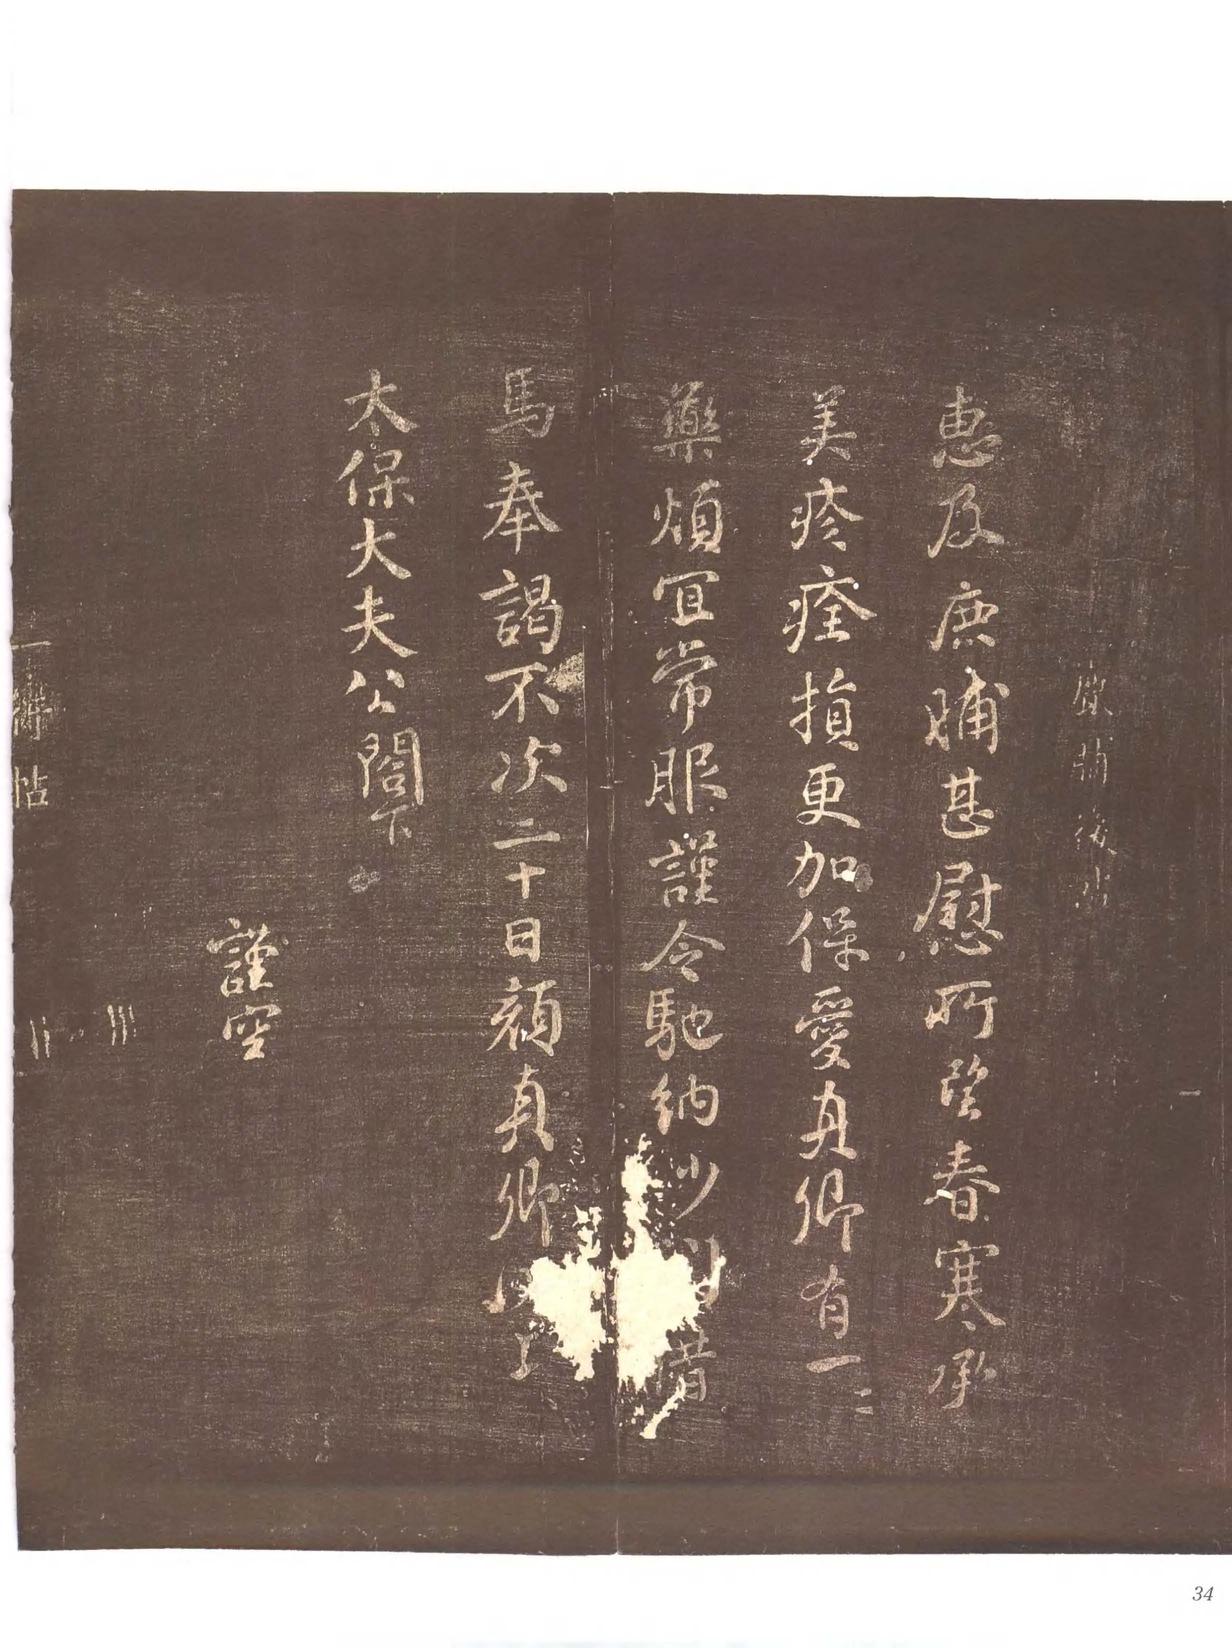 鹿脯後帖
惠及鹿脯甚慰所望春寒承
美疹痊損更加保愛真卿有一二
藥煩宜常服謹令馳納少借
馬奉謁不次二十日顏真卿上
太保大夫公閤下
謹空
帖
34